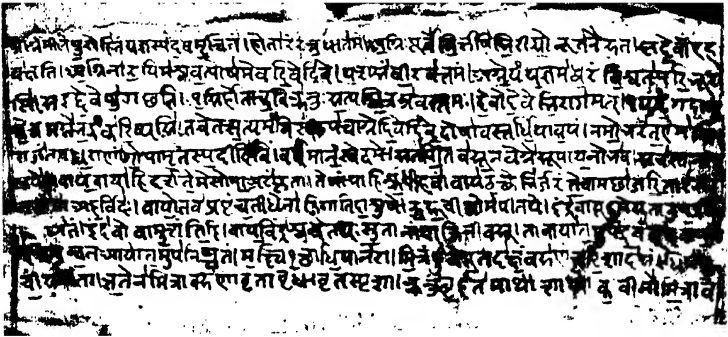 पुरोहितंयज्ञस्यदेवमृत्विजं। होतारंरत्नधातमं। अग्निःपूर्वेभिर्ऋषिभिरीड्योनूतनैरुत। सदेवाँएह
वक्षति। अग्निनारयिमश्नवत्पोषमेवदिवेदिवे। यशसंवीरवत्तमं। अग्नेयंयज्ञमध्वरंविश्वतःपरिभूर
सि। सइद्देवेषुगच्छति। अग्निर्होताकविक्रतुःसत्यश्चित्रश्रवस्तमः। देवोदेवेभिरागमत्। यदंगदाशु
षेत्वमग्नेभद्रंकरिष्यसि। तवेत्तत्सत्यमंगिरः। उपत्वाग्नेदिवेदिवेदोषावस्तर्धियावयं। नमोभरंतएमसि
राजंतमध्वराणांगोपामृतस्यदीदिविं। वर्धमानंस्वेदमे। सनःपितेवसूनवेग्नेसूपायनोभव।
वायवायाहिदर्शतेमेसोमाअरंकृताः। तेषांपाहिश्रुधीहवं। वायउक्थेभिर्जरंतेत्वामच्छाजरितारः।
अहर्विदः। वायोतवप्रपृंचतीधेनाजिगातिदाशुषे। उरूचीसोमपीतये। इंद्रवायूइमेसुताउपप्रयो
इंदवोवामुशंतिहि। वायविंद्रश्चचेतथःसुतानांवाजिनीवसू। तावायातमुपद्रवत्।
सुन्वतआयातमुपनिष्कृतं। मक्ष्वि१त्थाधियानरा। मित्रंहुवेपूतदक्षंवरुणंचरिशादसं।
ऋतेनमित्रावरुणावृतावृधावृतस्पृशा। क्रतुंबृहंतमाशाथे। कवीनोमित्राव